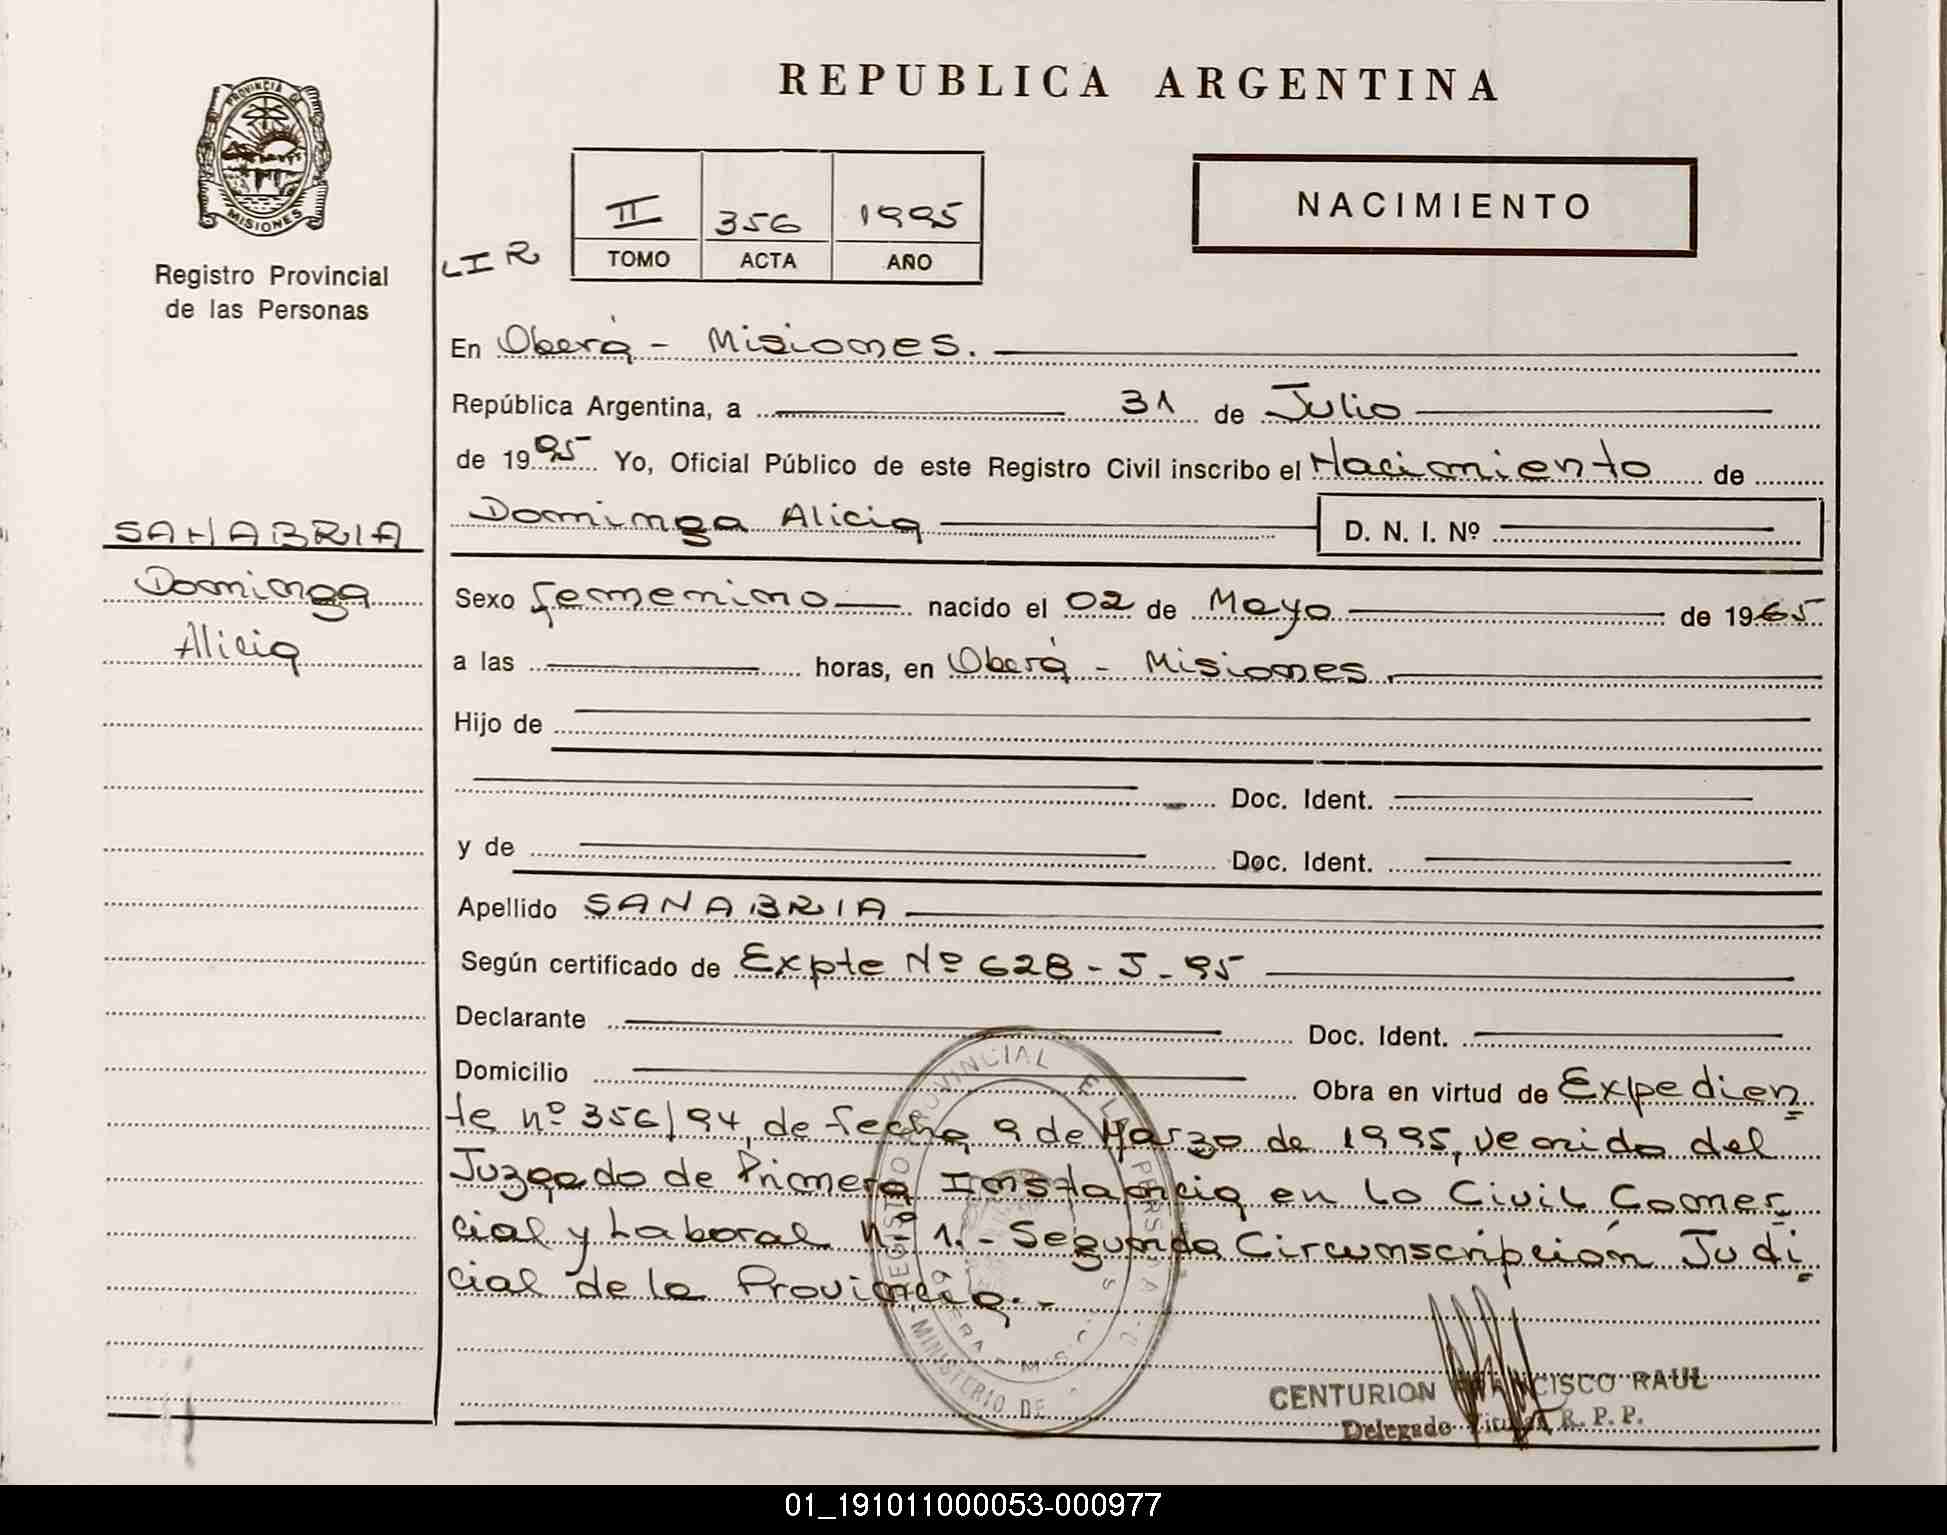 REPUBLICA ARGENTINA
PROVINCIA DE
MISIONES
Registro Provincial
de las Personas
LIR
II 356 1995
TOMO ACTA AÑO
NACIMIENTO
En Oberá - Misiones.
República Argentina, a 31 de Julio
de 1995 Yo, Oficial Público de este Registro Civil inscribo el Nacimiento de
Dominga Alicia D. N. I. Nº
SANABRIA
Dominga
Alicia
Sexo femenino nacido el 02 de Mayo de 1965
a las horas, en Oberá - Misiones.
Hijo de
Doc. Ident.
y de Doc. Ident.
Apellido SANABRIA
Según certificado de Expte Nº 628 - J - 95
Declarante Doc. Ident.
Domicilio Obra en virtud de Expedien
te nº 356/94, de fecha 9 de Marzo de 1995, venido del
Juzgado de Primera Instancia en lo Civil Comer
cial y Laboral nº 1. - Segunda Circunscripción Judi
cial de la Provincia. -
REGISTRO PROVINCIAL
MINISTERIO DE
CENTURION FRANCISCO RAUL
Delegado Titular R. P. P.
01_191011000053-000977